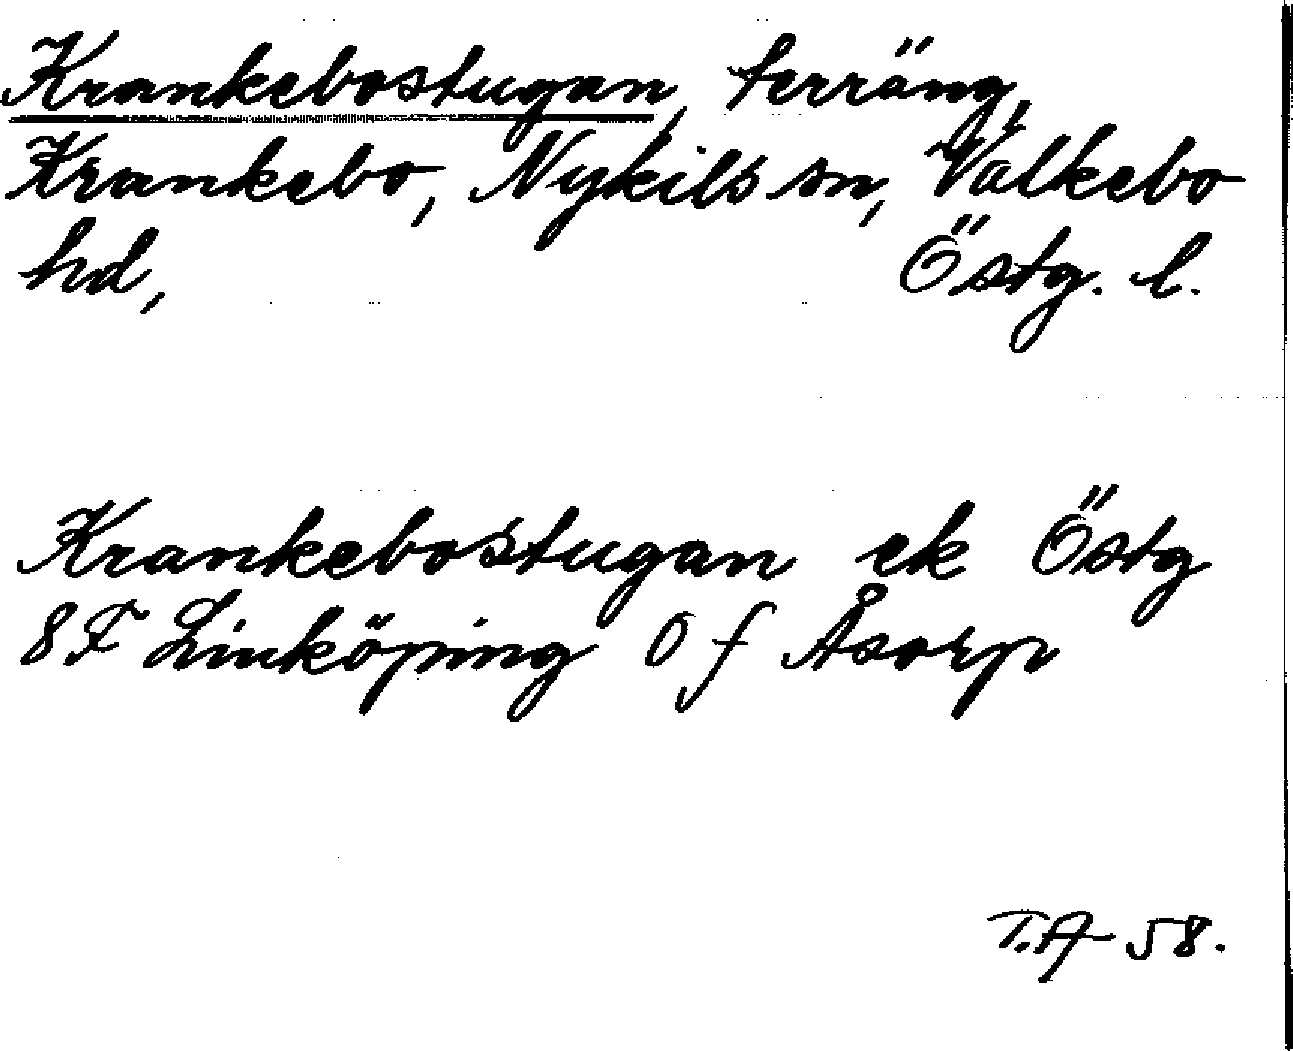 Krankebostugan, terräng,
Krankebo, Nykils sn, Valkebo
hd, Östg. l.
Krankebostugan ek Östg
8F Linköping 0 f Åsorp
T.A- 58.